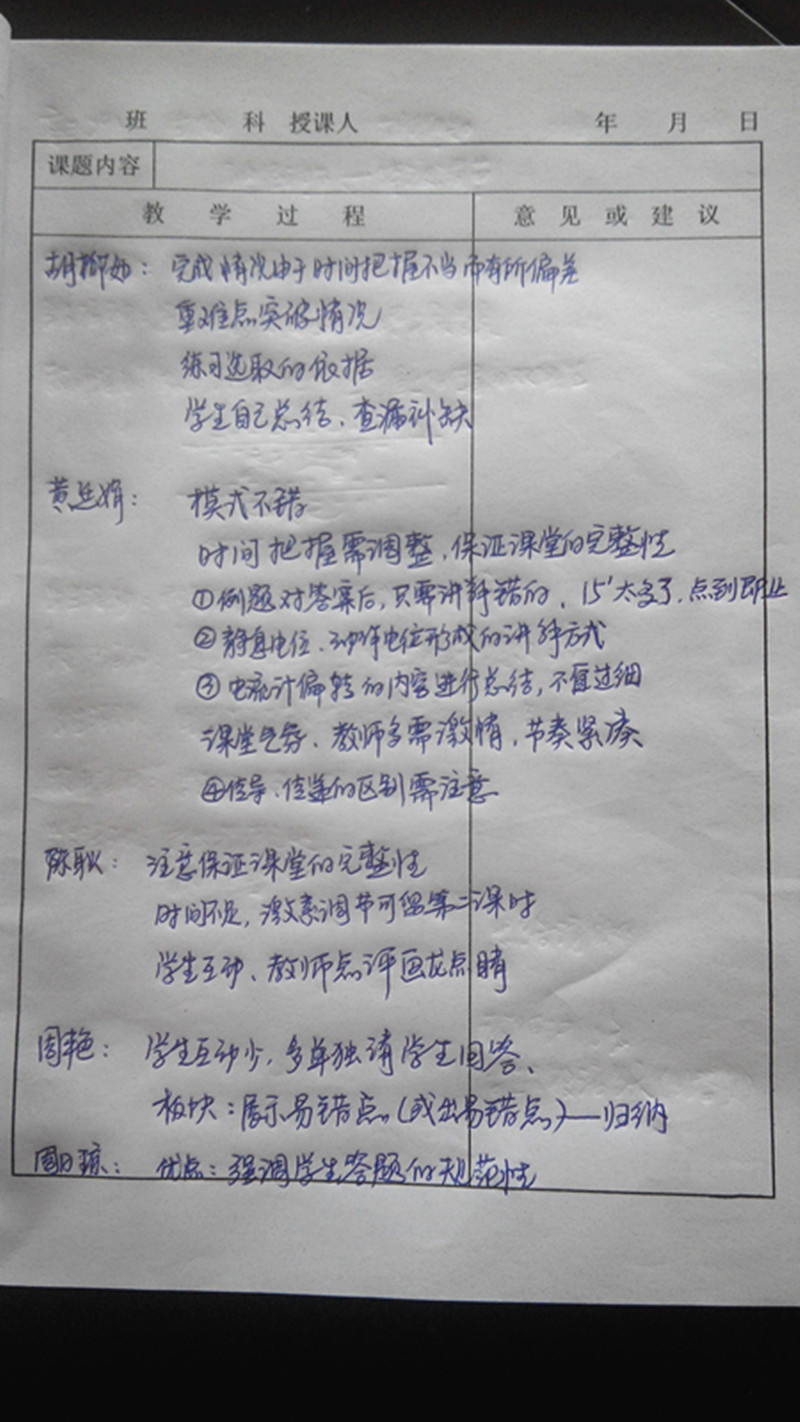 班 科 授课人 年 月 日
课题内容
教 学 过 程 意 见 或 建 议
胡柳如：完成情况由于时间把握不当而有所偏差
重难点突破情况
练习选取的依据
学生自己总结、查漏补缺
黄 娟：模式不错
时间把握需调整，保证课堂的完整性
①例题对答案后，只需讲解错的，15'太多了，点到即止
②静息电位、动作电位形成的讲解方式
③电流计偏转的内容进行总结，不宜过细
课堂气氛、教师多需激情，节奏紧凑
④传导、传递的区别需注意
陈耿：注意保证课堂的完整性
时间不足，激素调节可留第二课时
学生互动、教师点评画龙点睛
周艳：学生互动少，多单独请学生回答、
板块：展示易错点（或出易错点）—归纳
周日琼：优点：强调学生答题的规范性